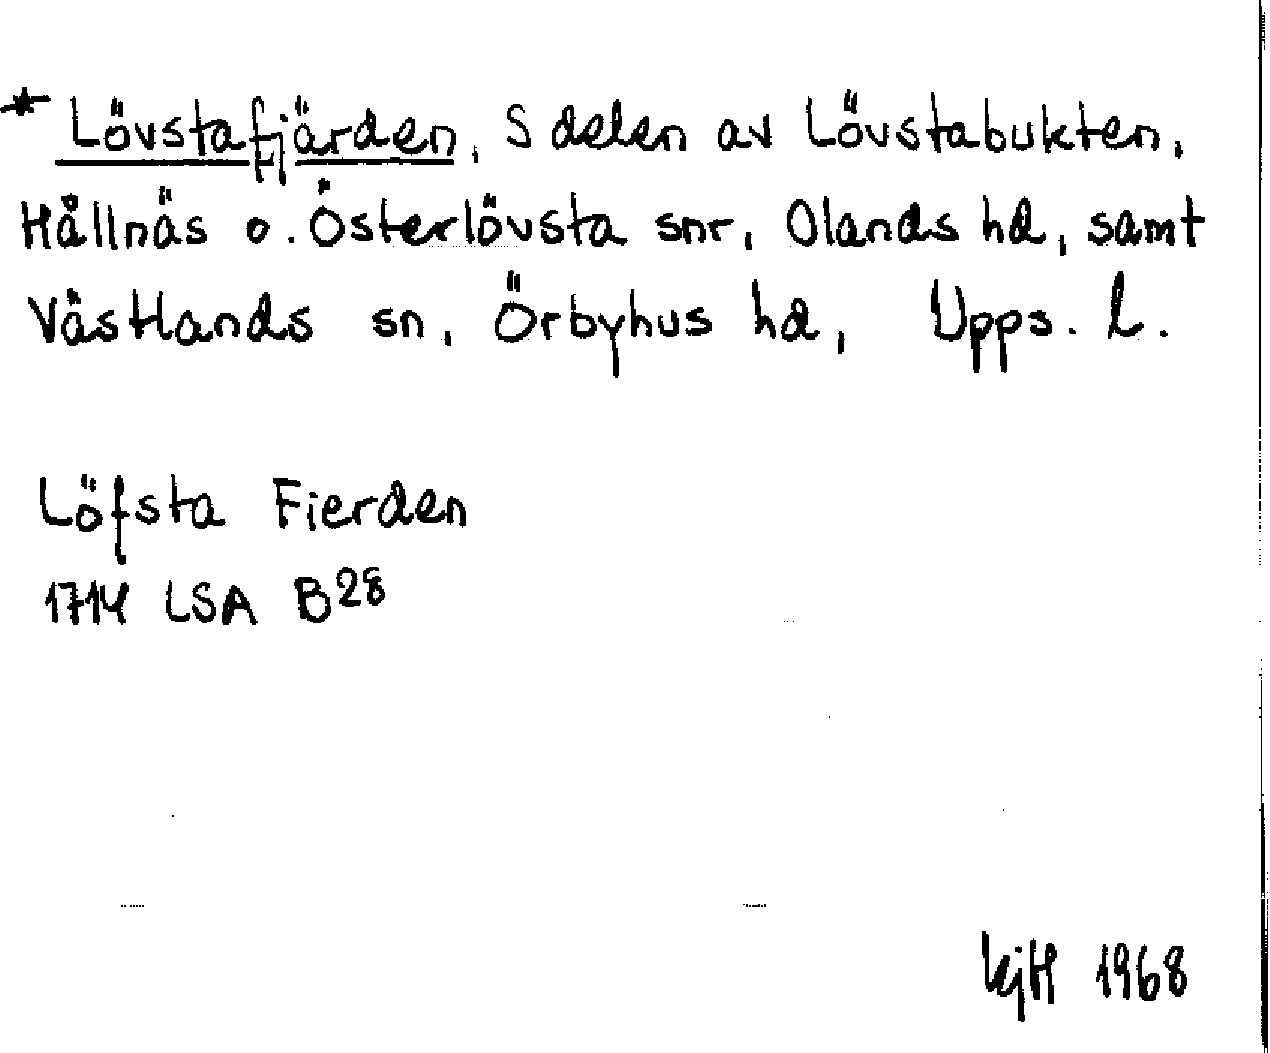 * Lövstafjärden, S delen av Lövstabukten,
Hållnäs o. Österlövsta snr, Olands hd, samt
Västlands sn, Örbyhus hd, Upps. l.
Löfsta Fierden
1714 LSA B28
KjH 1968